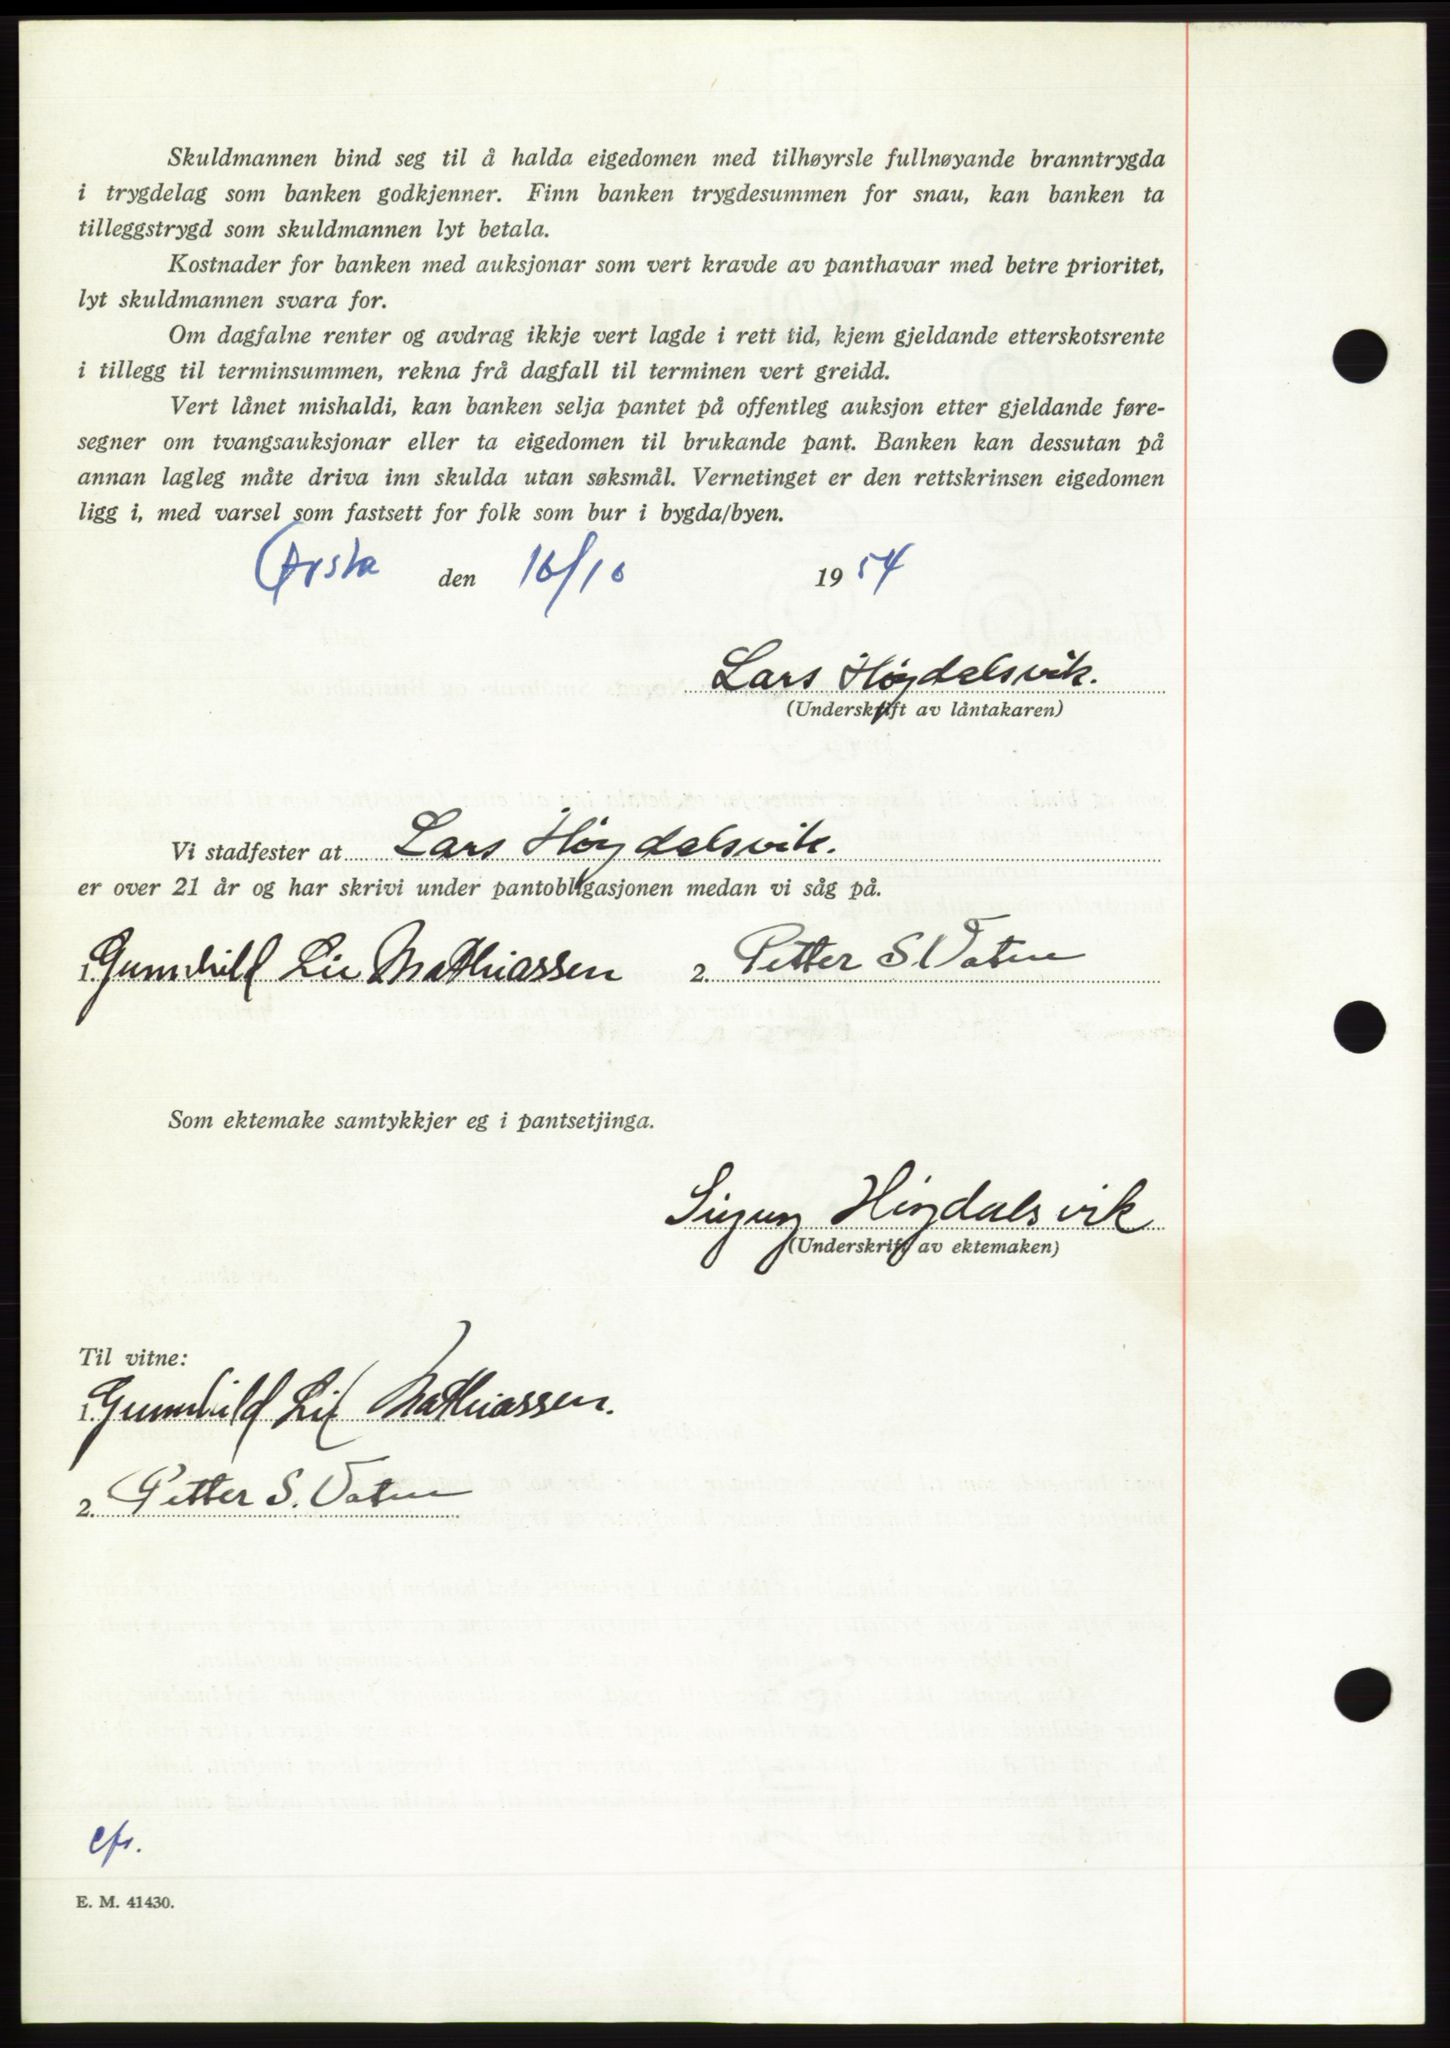 Skuldmannen bind seg til å halda eigedomen med tilhøyrsle fullnøyande branntrygda
i trygdelag som banken godkjenner. Finn banken trygdesummen for snau, kan banken ta
tilleggstrygd som skuldmannen lyt betala.
Kostnader for banken med auksjonar som vert kravde av panthavar med betre prioritet,
lyt skuldmannen svara for.
Om dagfalne renter og avdrag ikkje vert lagde i rett tid, kjem gjeldande etterskotsrente
i tillegg til terminsummen, rekna frå dagfall til terminen vert greidd.
Vert lånet mishaldi, kan banken selja pantet på offentleg auksjon etter gjeldande føre-
segner om tvangsauksjonar eller ta eigedomen til brukande pant. Banken kan dessutan på
annan lagleg måte driva inn skulda utan søksmål. Vernetinget er den rettskrinsen eigedomen
ligg i, med varsel som fastsett for folk som bur i bygda/byen.
Ørsta den 16/10 1954
Lars Høydalsvik.
(Underskrift av låntakaren)
Vi stadfester at Lars Høydalsvik.
er over 21 år og har skrivi under pantobligasjonen medan vi såg på.
1. Gunnhild Lie Mathiassen 2. Petter S. Vatne
Som ektemake samtykkjer eg i pantsetjinga.
Høydalsvik
(Underskrift av ektemaken)
Til vitne:
1. Gunnhild Lie Mathiassen.
2. Petter S. Vatne
cfr.
E. M. 41430.